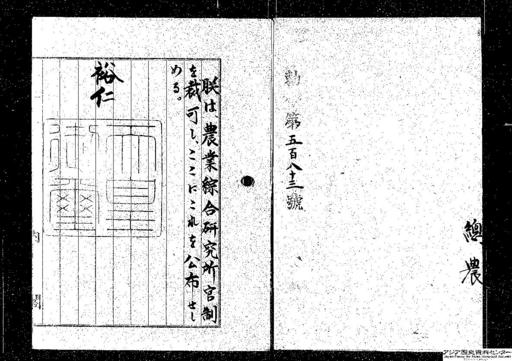 總農
勅 第五百八十三號
朕は、農業綜合研究所官制
を裁可し、ここにこれを公布せし
める。
裕仁
天皇御璽
内閣
アジア歴史資料センター